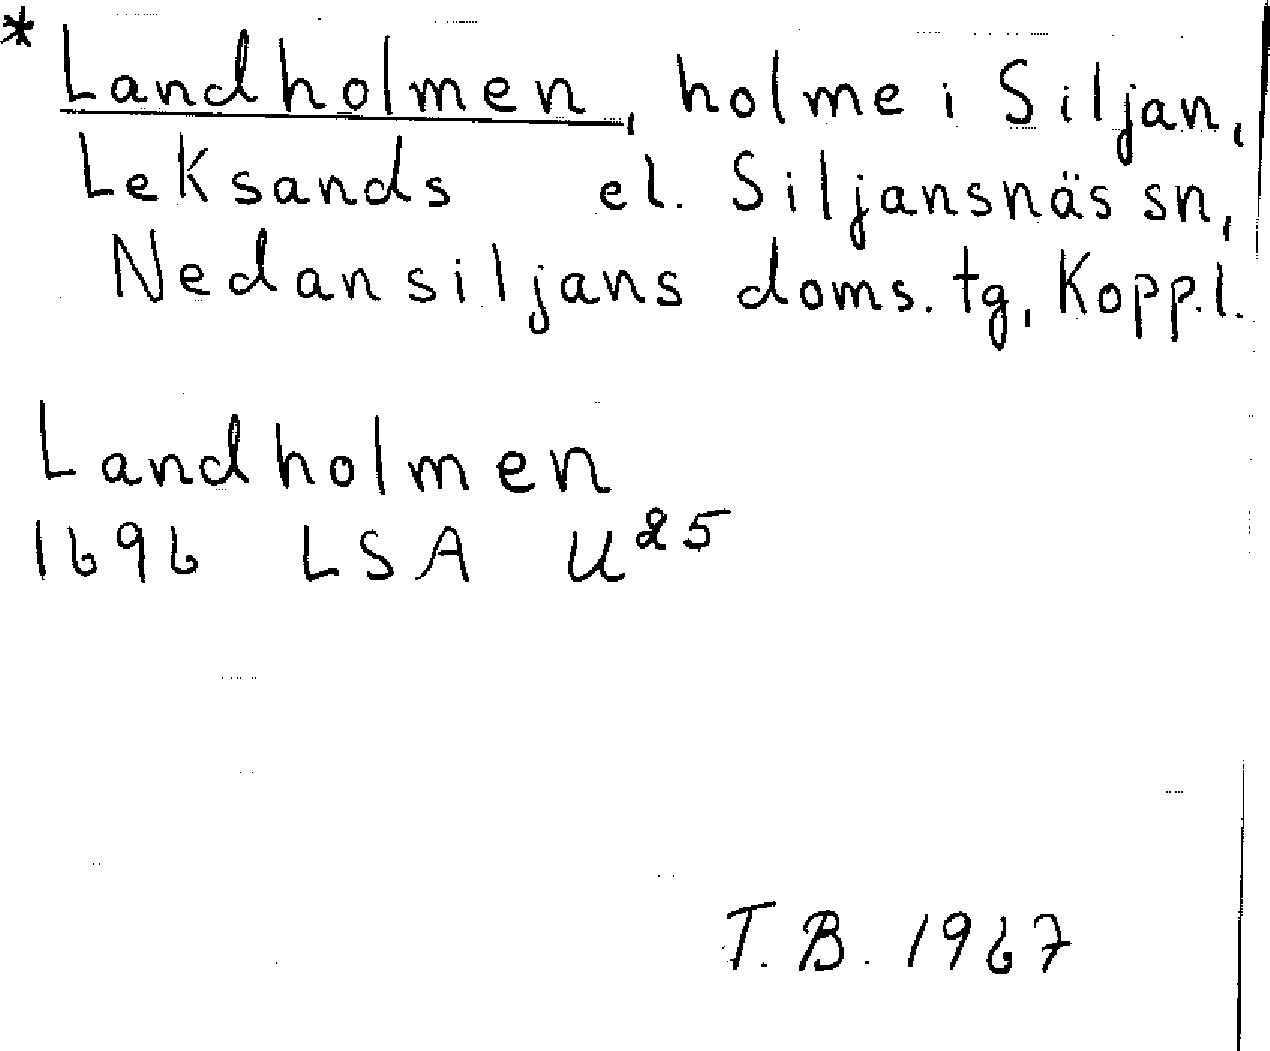 * Landholmen, holme i Siljan,
Leksands el. Siljansnäs sn,
Nedansiljans doms. tg, Kopp.l.
Landholmen
1696 LSA U25
T.B. 1967